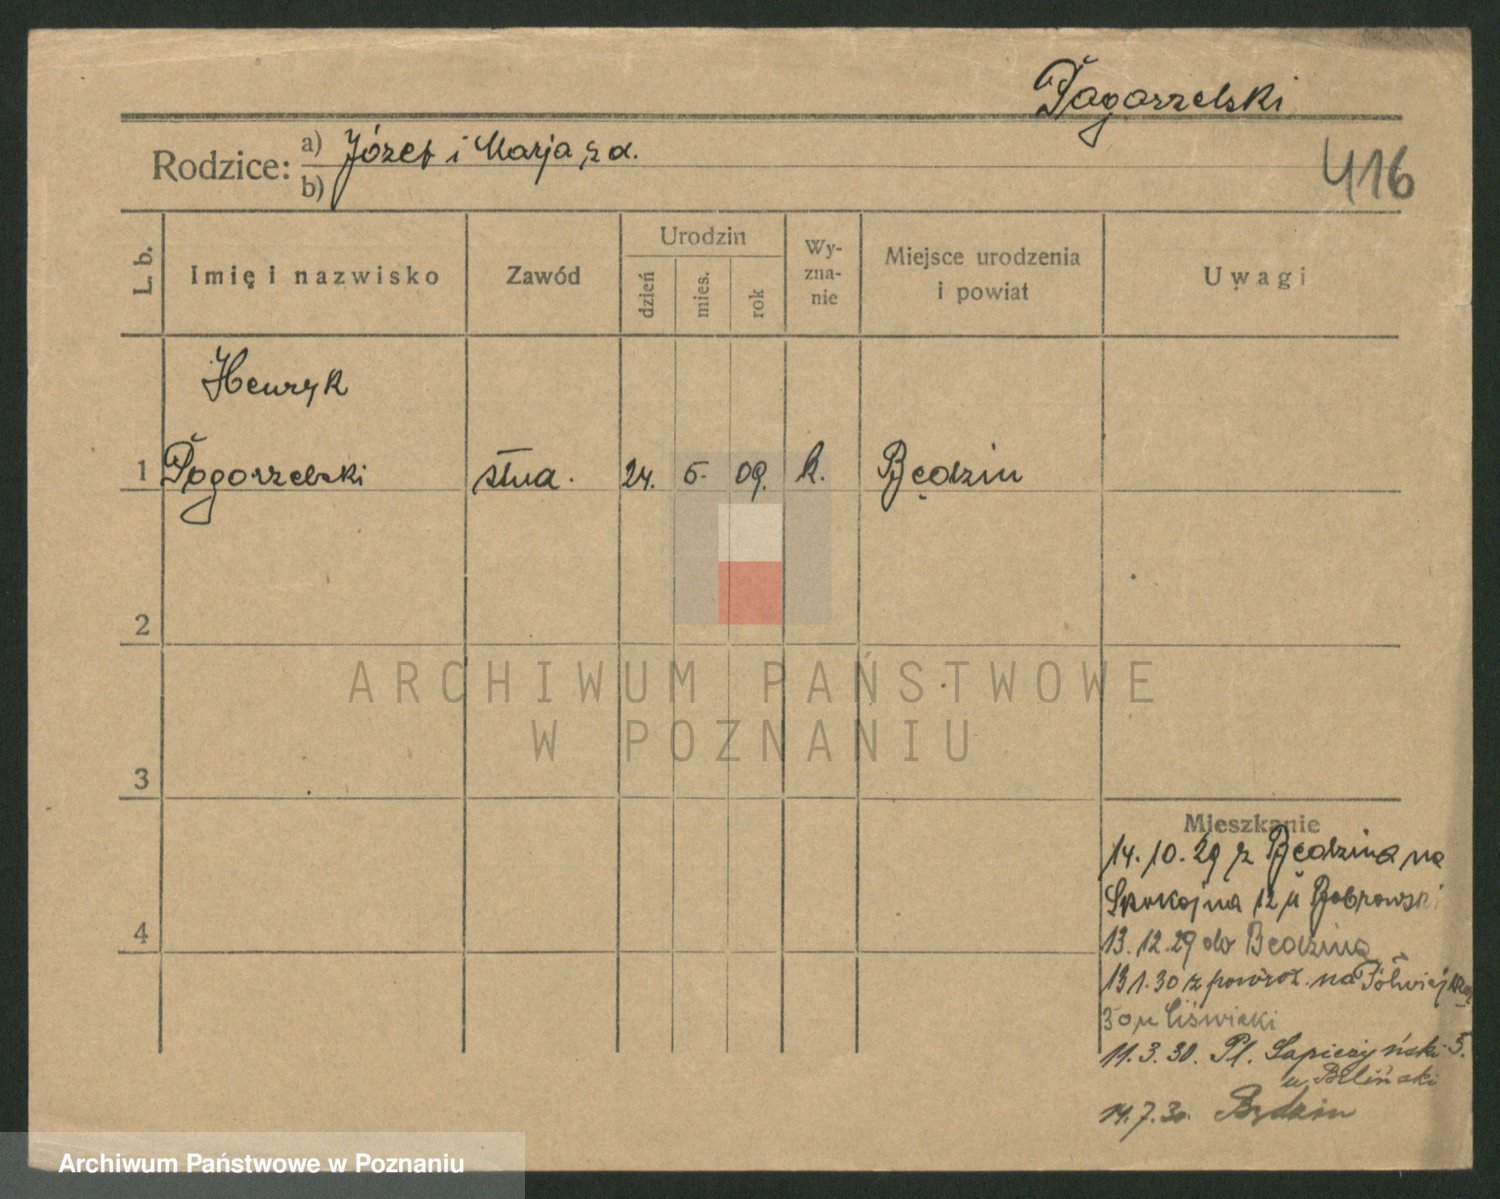 Pogorzelski
Rodzice: a) Józef i Marja, z d.
b)
416
L. b.
Imię i nazwisko
Zawód
Urodzin
dzień
mies.
rok
Wy-
zna-
nie
Miejsce urodzenia
i powiat
Uwagi
Henryk
1 Pogorzelski stud. 24. 5. 09. k. Będzin
2
3
4
ARCHIWUM PAŃSTWOWE
W POZNANIU
Mieszkanie
14. 10. 29 z Będzina na
Spokojna 12 u Bobrowski
13. 12. 29 do Będzina
13 1. 30 z powrot. na Półwiejska
30 u
11. 3. 30. Pl. Sapieżyński 5.
u Beliński
14. 7. 30 Będzin
Archiwum Państwowe w Poznaniu